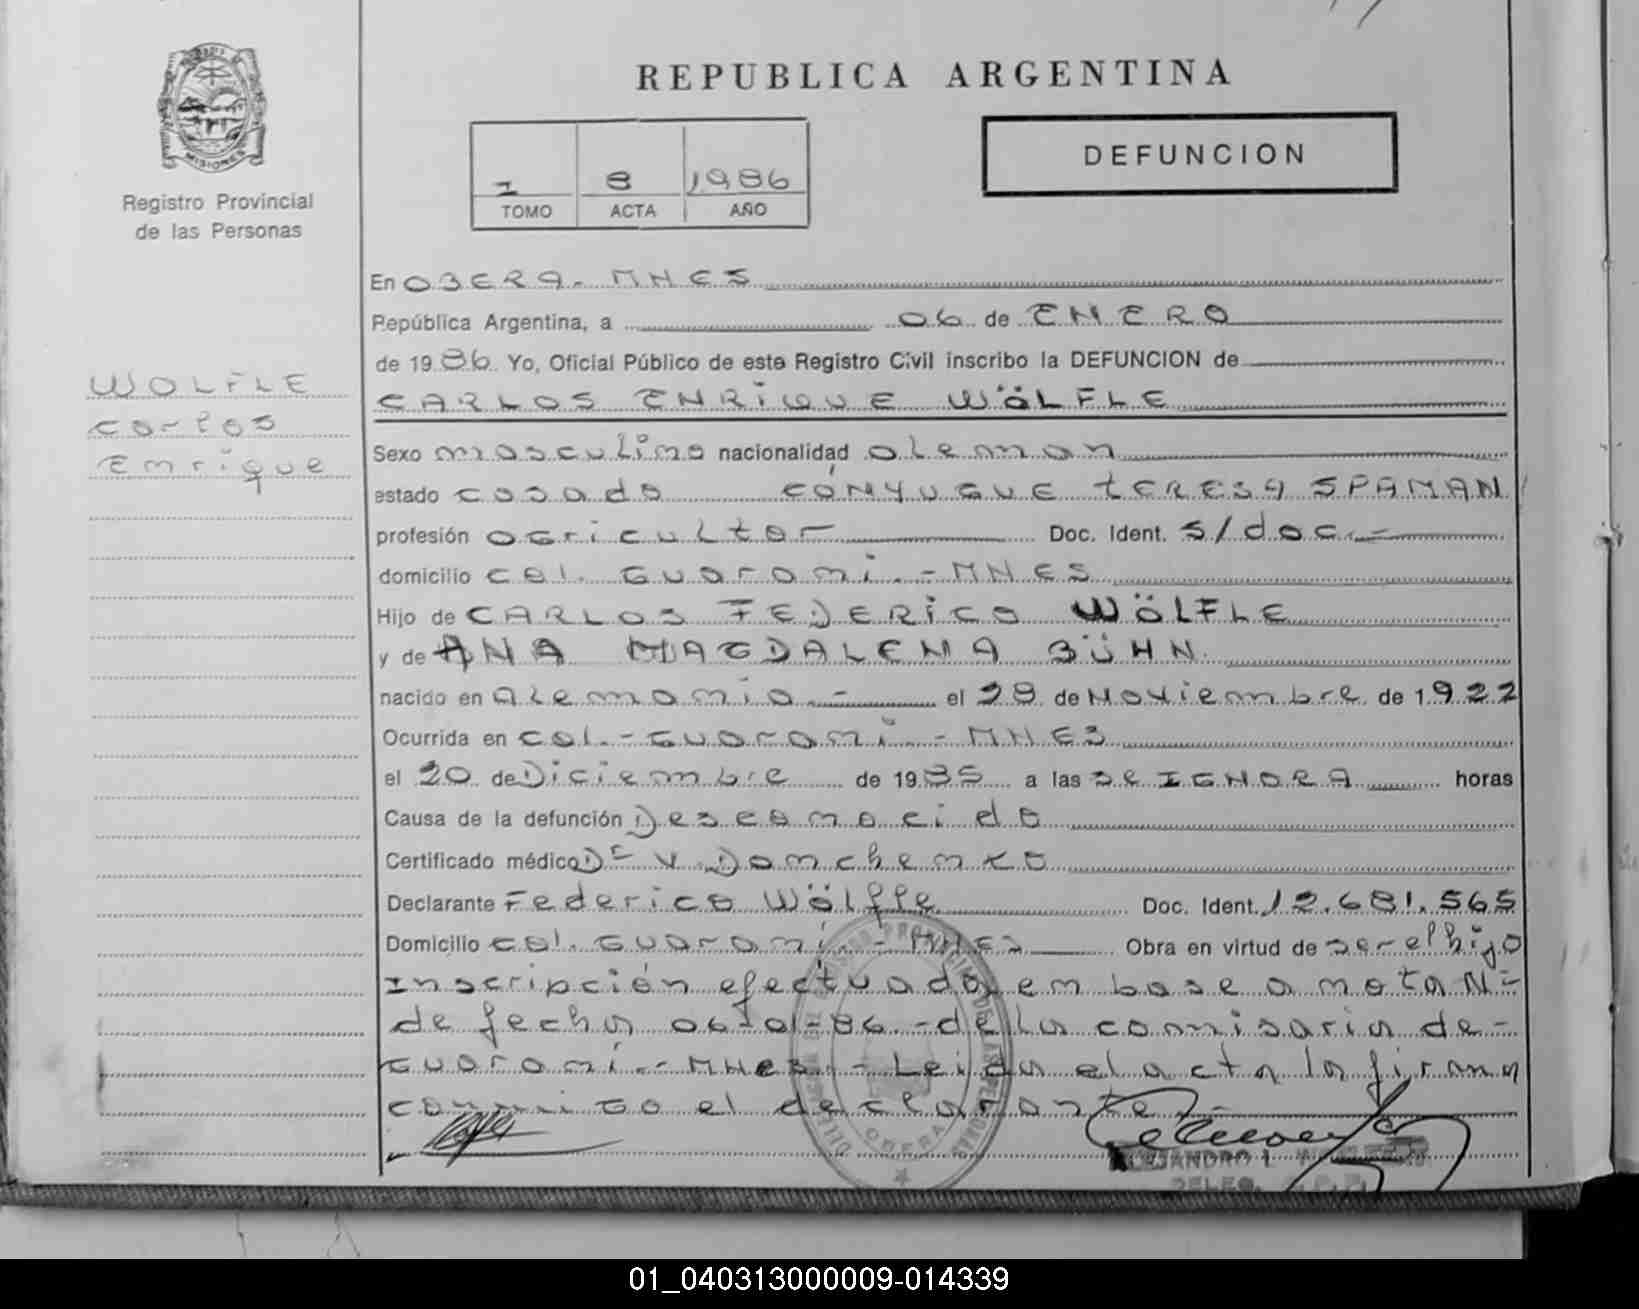 REPUBLICA ARGENTINA
MISIONES
Registro Provincial
de las Personas
I 8 1986
TOMO ACTA AÑO
DEFUNCION
WOLFLE
Carlos
Enrique
En OBERA.- MNES
República Argentina, a 06 de ENERO
de 1986. Yo, Oficial Público de este Registro Civil inscribo la DEFUNCION de
CARLOS ENRIQUE WÖLFLE
Sexo masculino nacionalidad aleman
estado casado CÓNYUGUE TERESA SPAMAN
profesión agricultor Doc. Ident. s/doc.-
domicilio col. Guarani.-MNES
Hijo de CARLOS FEDERICO WÖLFLE
y de ANA MAGDALENA BÜHN.
nacido en Alemania.- el 28 de Noviembre de 1922
Ocurrida en col.-Guarani.-MNES
el 20 de Diciembre de 1985 a las se IGNORA horas
Causa de la defunción Desconocido
Certificado médico Dr V. Domchenko
Declarante Federico Wölfle Doc. Ident. 12.681.565
Domicilio col. Guarani.-MNES Obra en virtud de ser el hijo
Inscripción efectuada en base a nota Nº
de fecha 06-01-86 -de la comisaria de-
Guarani.-MNES.- Leida el acta la firma
conmigo el declarante.-
DELEGACION DEL REGISTRO PROVINCIAL DE LAS PERSONAS
OBERA
ALEJANDRO I.
DELEG.
01_040313000009-014339